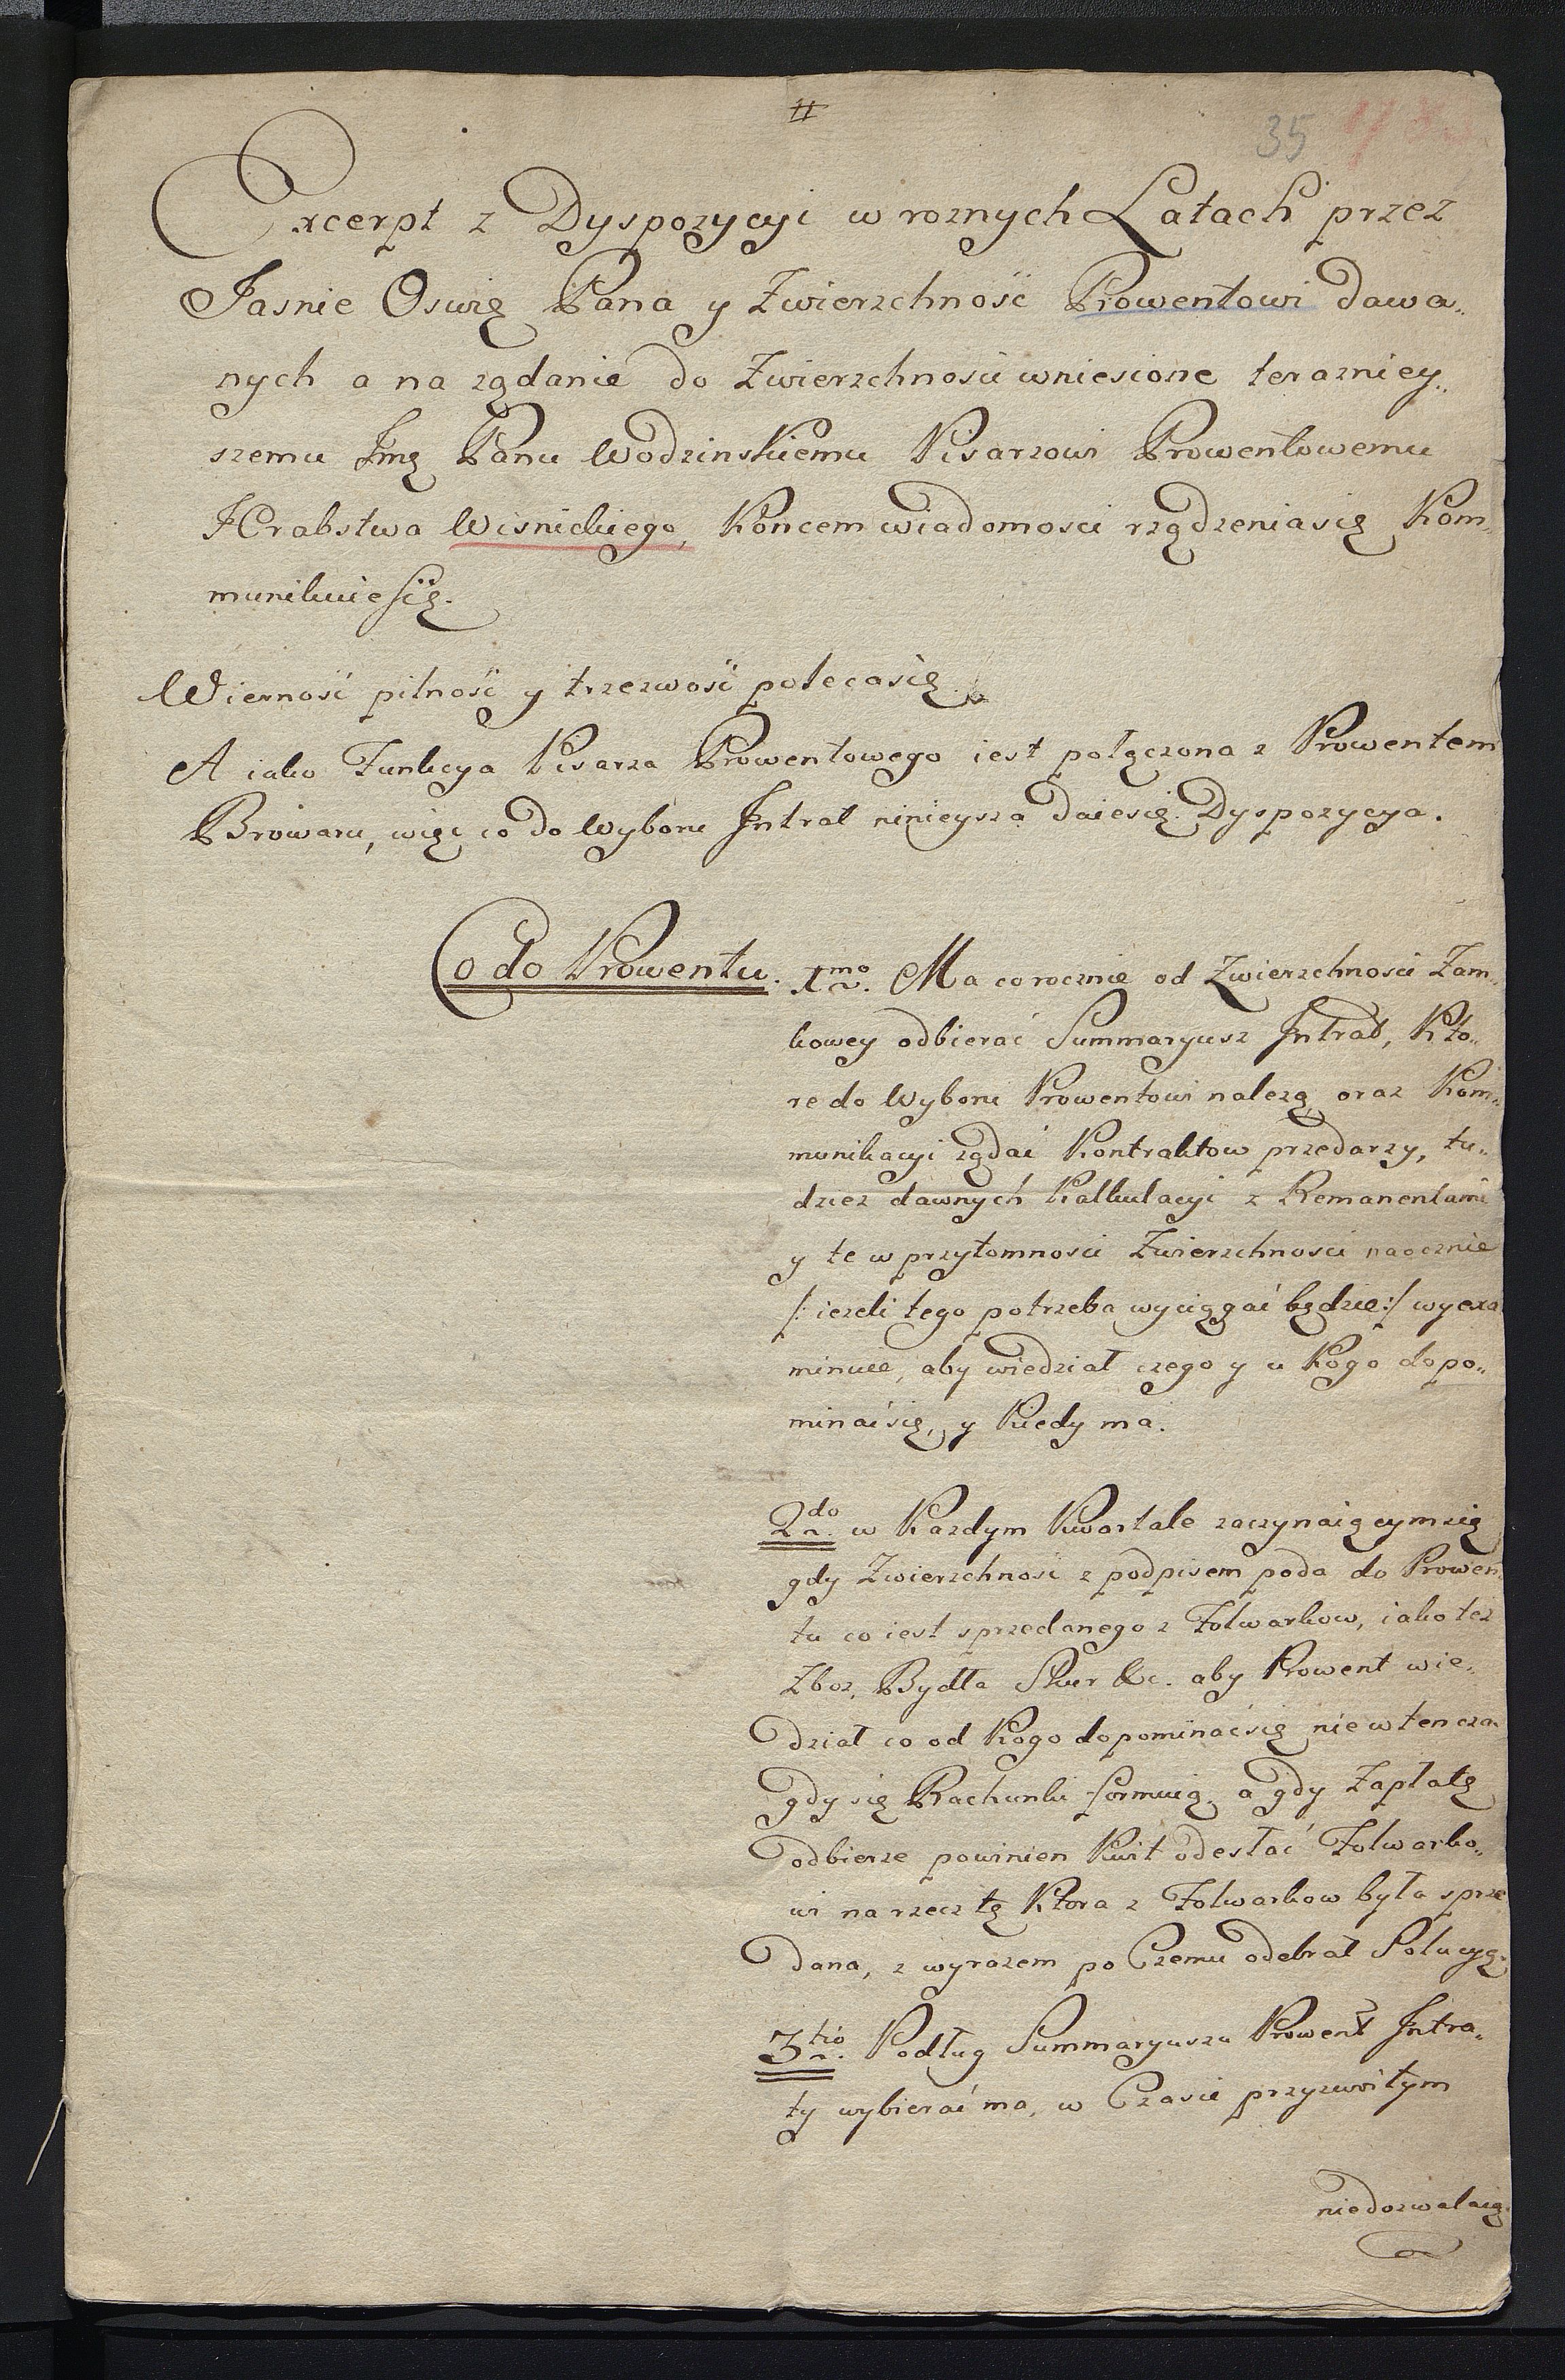 #
35
Excerpt z Dyspozycyi w roznych Latach przez
Jasnie Oswię Pana y Zwierzchność Prowentowi dawa„
nych a na ządanie do Zwierzchności wniesione terazniey„
szemu Jmę Panu Wodzinskiemu Pisarzowi Prowentowemu
Hrabstwa Wisnickiego, Koncem wiadomosci rządzenia się Kom„
munikuie się.
Wierność pilność y trzezwość poleca się.
A iako Funkcya Pisarza Prowentowego iest połączona z Prowentem
Browaru, więc co do Wyboru Intrat ninieysza daie się Dyspozycya.
Co do Prowentu. 1mo. Ma corocznie od Zwierzchności Zam„
kowey odbierać Summaryusz Intrat, Kto„
re do Wyboru Prowentowi należą, oraz Kom„
munikacyi ządać Kontraktow przedarzy, tu„
dziez dawnych Kalkulacyi z Remanentami
y te w przytomności Zwierzchności naocznie
/: iezeli tego potrzeba wyciągać będzie :/ wyexa
minuie, aby wiedział czego y u Kogo dopo„
minać się, y Kiedy ma.
2do. w Kazdym Kwartale zaczynaiącym się
gdy Zwierzchność z podpisem poda do Prowen„
tu co iest sprzedanego z Folwarkow, iako tez
Zboz, Bydła Skur &c. aby Prowent wie„
dział co od Kogo dopominać się nie w ten czas
gdy się Rachunki formuią, a gdy Zapłatę
odbierze powinien Kwit odesłać Folwarko„
wi na rzecz tę Ktora z Folwarkow była sprze
dana, z wyrazem po Czemu odebrał Solucyą.
3tio. Podług Summaryuszu Prowent Intra„
ty wybierać ma, w Czasie przyzwoitym
niedozwalaią